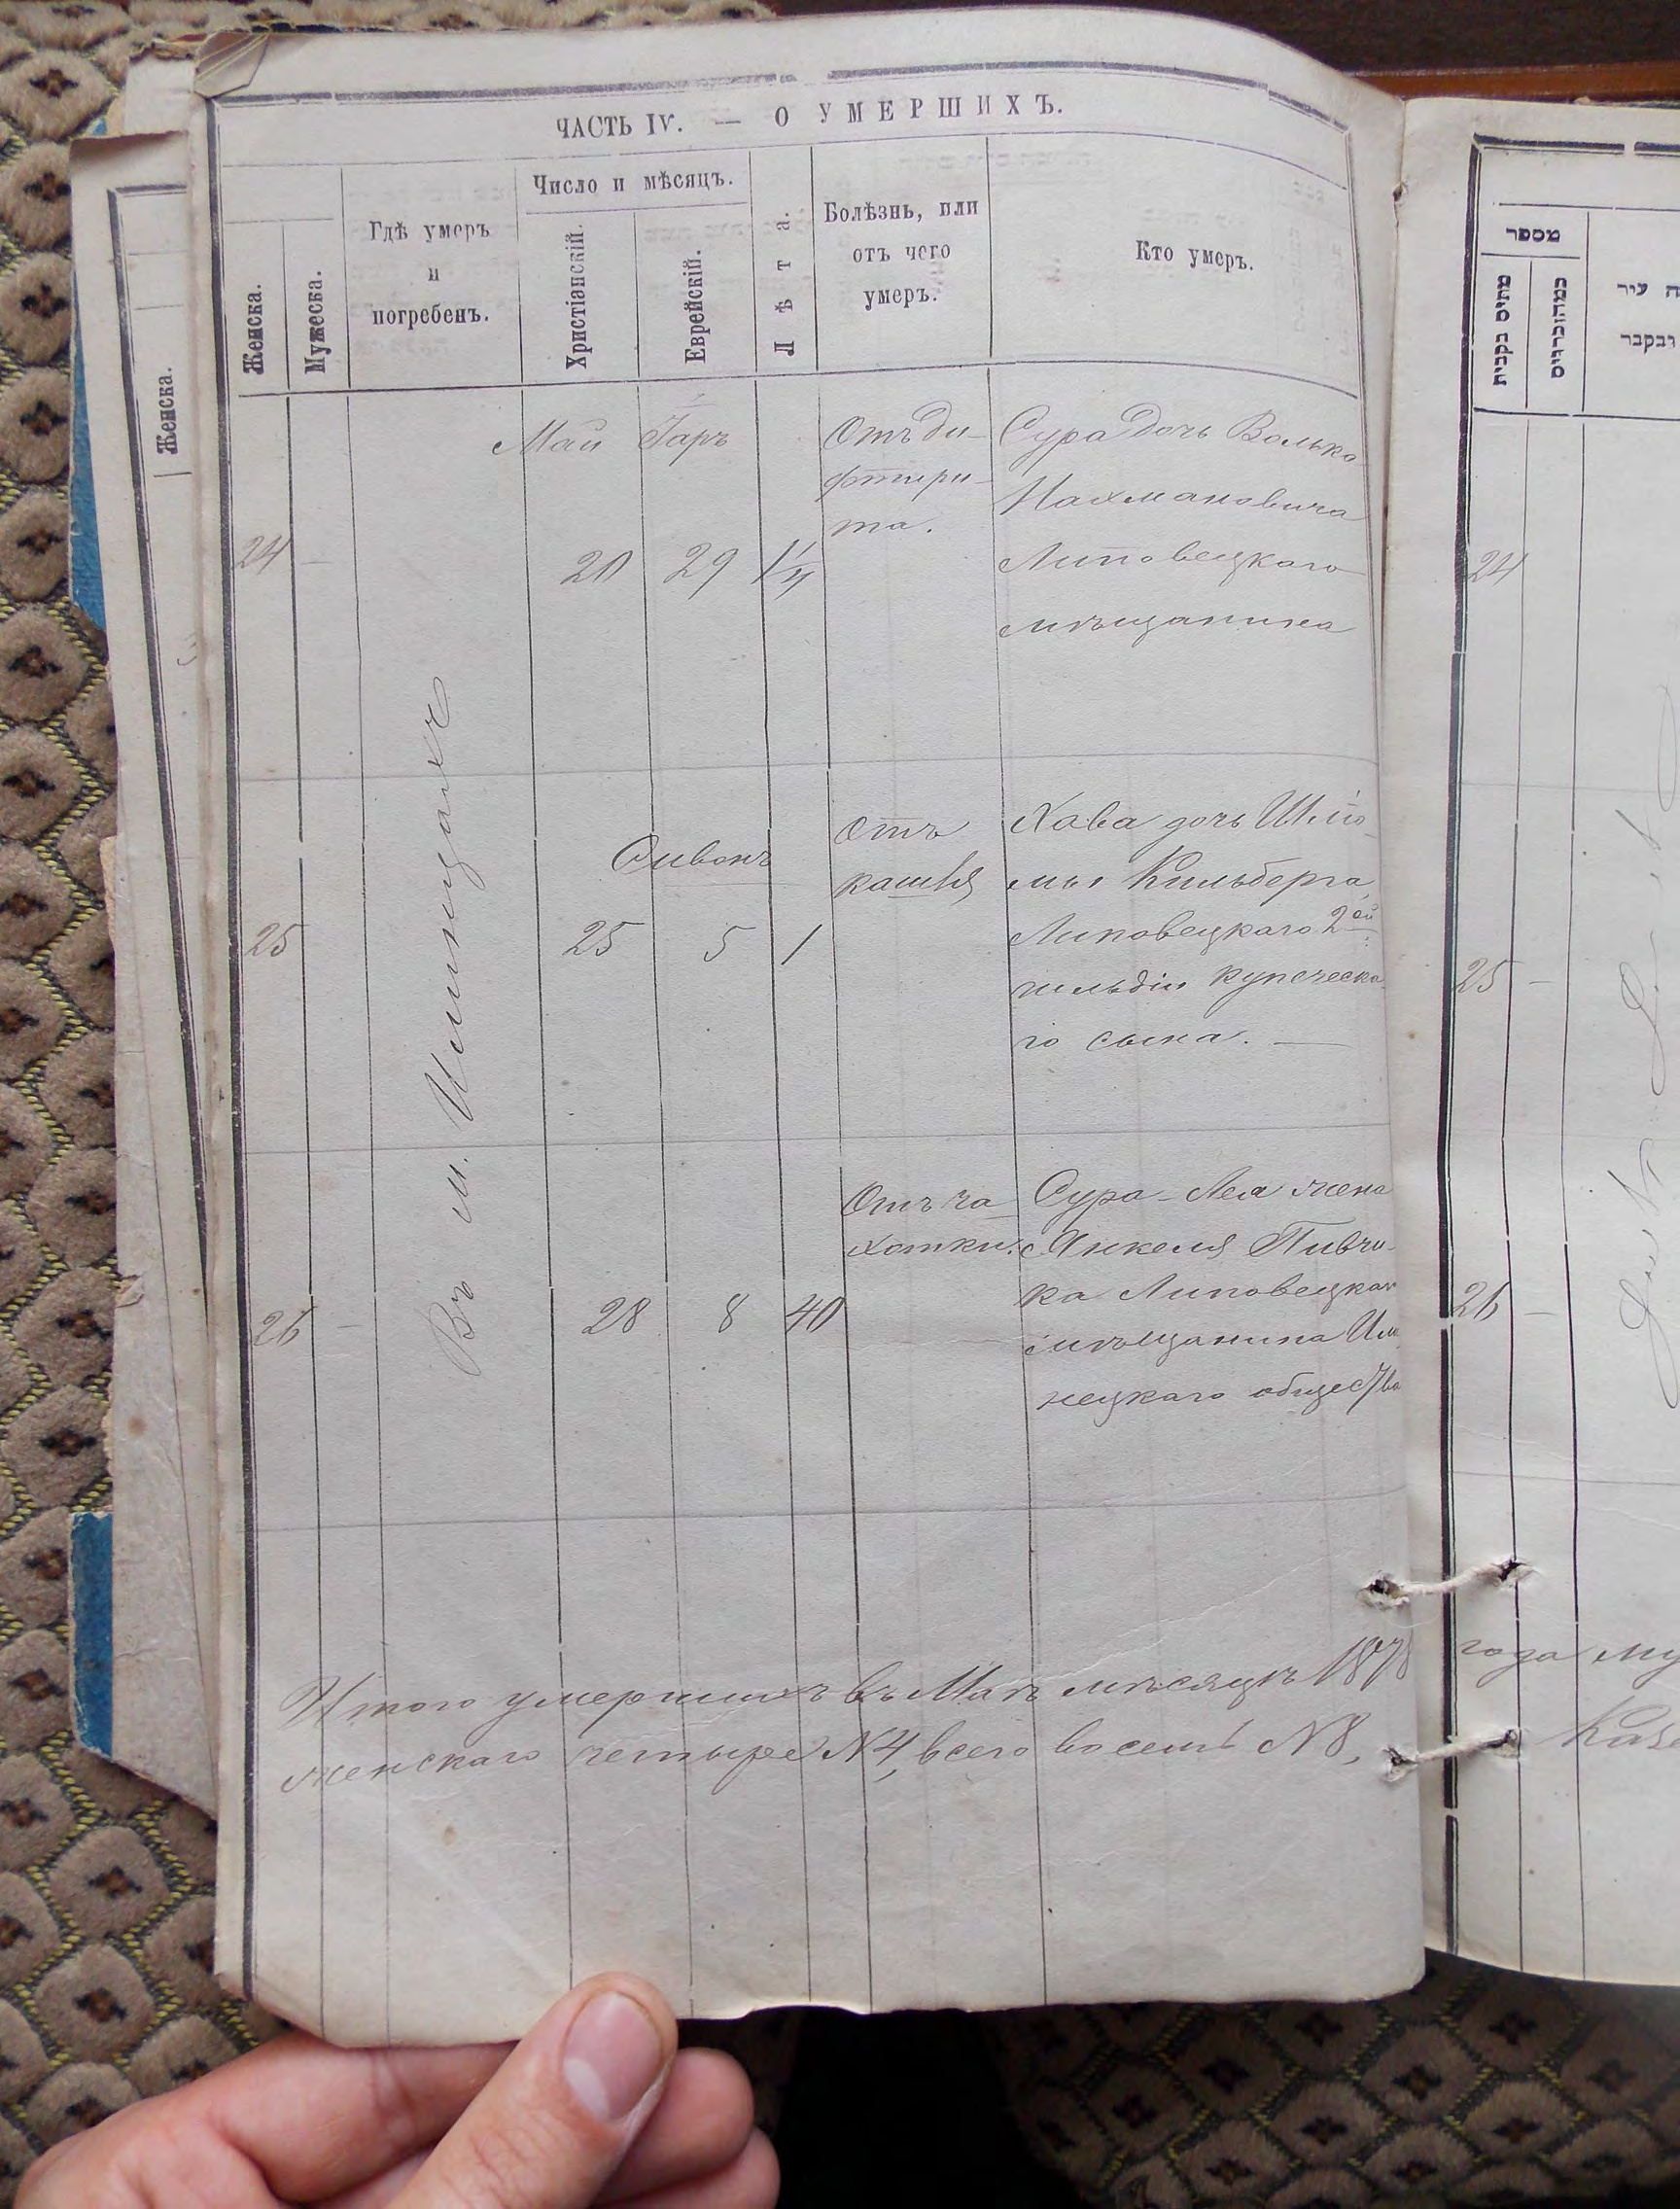 ЧАСТЬ IV. — О УМЕРШИХЪ.
Женска.
Мужеска.
Гдѣ умеръ
и
погребенъ.
Число и мѣсяцъ.
Христіанскій.
Еврейскій.
Лѣта.
Болѣзнь, или
отъ чего
умеръ.
Кто умеръ.
Въ м. Илинцахъ
Май Іаръ
24 — 20 29 1 1/4
Отъ ди-
фтири-
та.
Сура дочь Волько
Нахмановича
Липовецкаго
мѣщанина
Сивонъ
25 25 5 1
Отъ
кашля
Хава дочь Шлио-
мы Кильберга
Липовецкаго 2ой
гильдіи купеческа
го сына. —
26 — 28 8 40
Отъ ча
хотки.
Сура-Леа жена
Янкеля Пивчи-
ка Липовецкаго
мѣщанина Или
нецкаго общества
Итого умершихъ въ Маѣ мѣсяцѣ 1878
женскаго четыре №4, всего восемь №8,
Женска.
מספר
מתים בקבית
כמהזכרים
ה עיר
ובקבר
24
25 —
26 —
года му